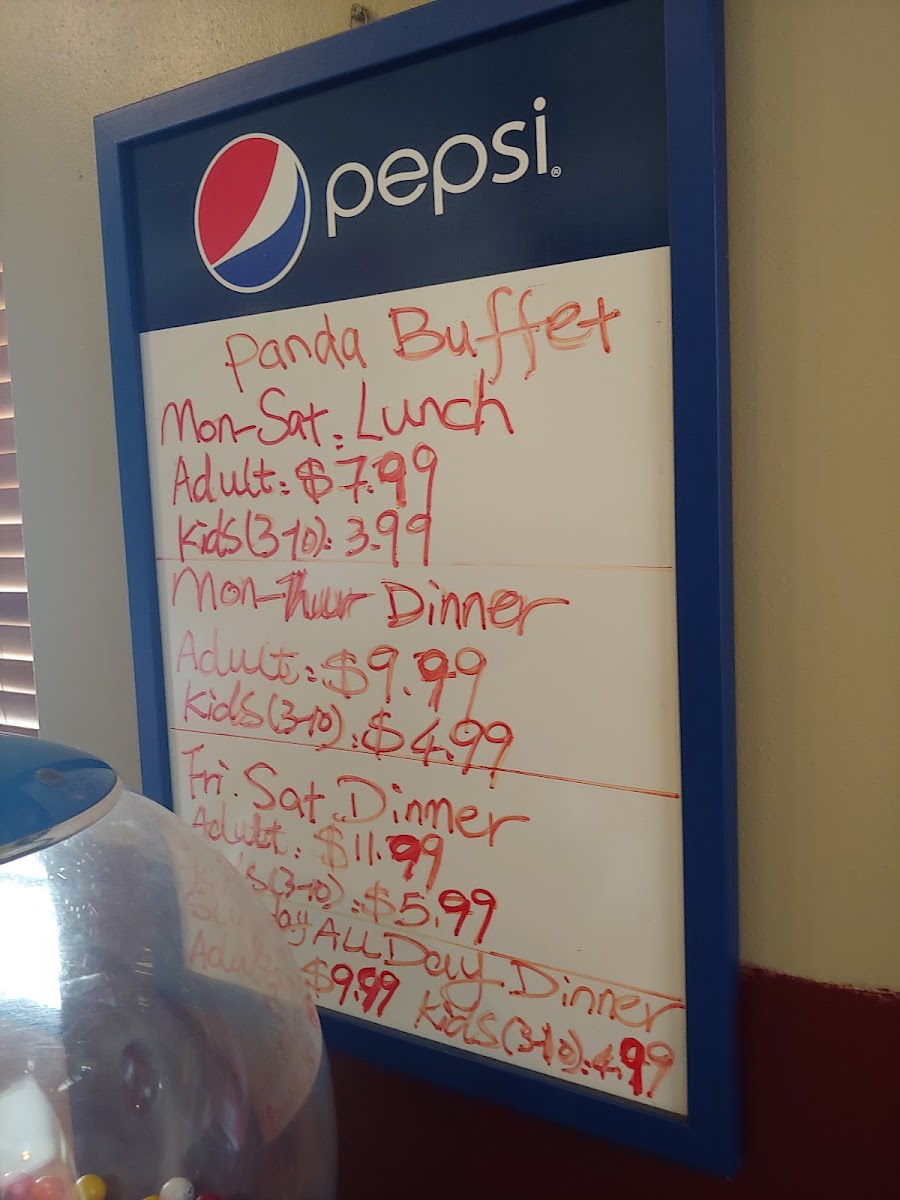 pepsi®
Panda Buffet
Mon-Sat. Lunch
Adult: $7.99
Kids(3-10): 3.99
Mon-Thur Dinner
Adult: $9.99
Kids(3-10): $4.99
Fri. Sat. Dinner
Adult: $11.99
Kid's(3-10): $5.99
Sunday All Day Dinner
Adult $9.99 Kids(3-10): 4.99